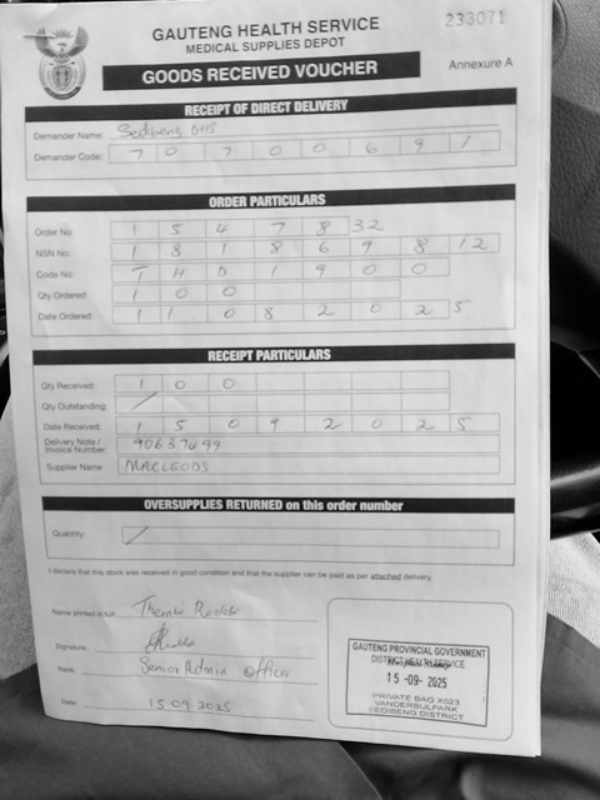 233071
GAUTENG HEALTH SERVICE
MEDICAL SUPPLIES DEPOT
GOODS RECEIVED VOUCHER
Annexure A
RECEIPT OF DIRECT DELIVERY
Demander Name: Sedibeng DHS
Demander Code: 7 0 7 0 0 6 9 1
ORDER PARTICULARS
Order No: 1 5 4 7 8 32
NSN No: 1 8 1 8 6 9 8 12
Code No: T H D 1 9 0 0
Qty Ordered: 1 0 0
Date Ordered: 1 1 0 8 2 0 2 5
RECEIPT PARTICULARS
Qty Received: 1 0 0
Qty Outstanding: /
Date Received: 1 5 0 9 2 0 2 5
Delivery Note /
Invoice Number: 90637499
Supplier Name MACLEODS
OVERSUPPLIES RETURNED on this order number
Quantity: /
I declare that this stock was received in good condition and that the supplier can be paid as per attached delivery.
Name printed in full: Thembi
Signature:
Rank: Senior Admin Officer
Date: 15.09.2025
GAUTENG PROVINCIAL GOVERNMENT
DISTRICT HEALTH SERVICE
15 -09- 2025
PRIVATE BAG X023
VANDERBIJLPARK
SEDIBENG DISTRICT